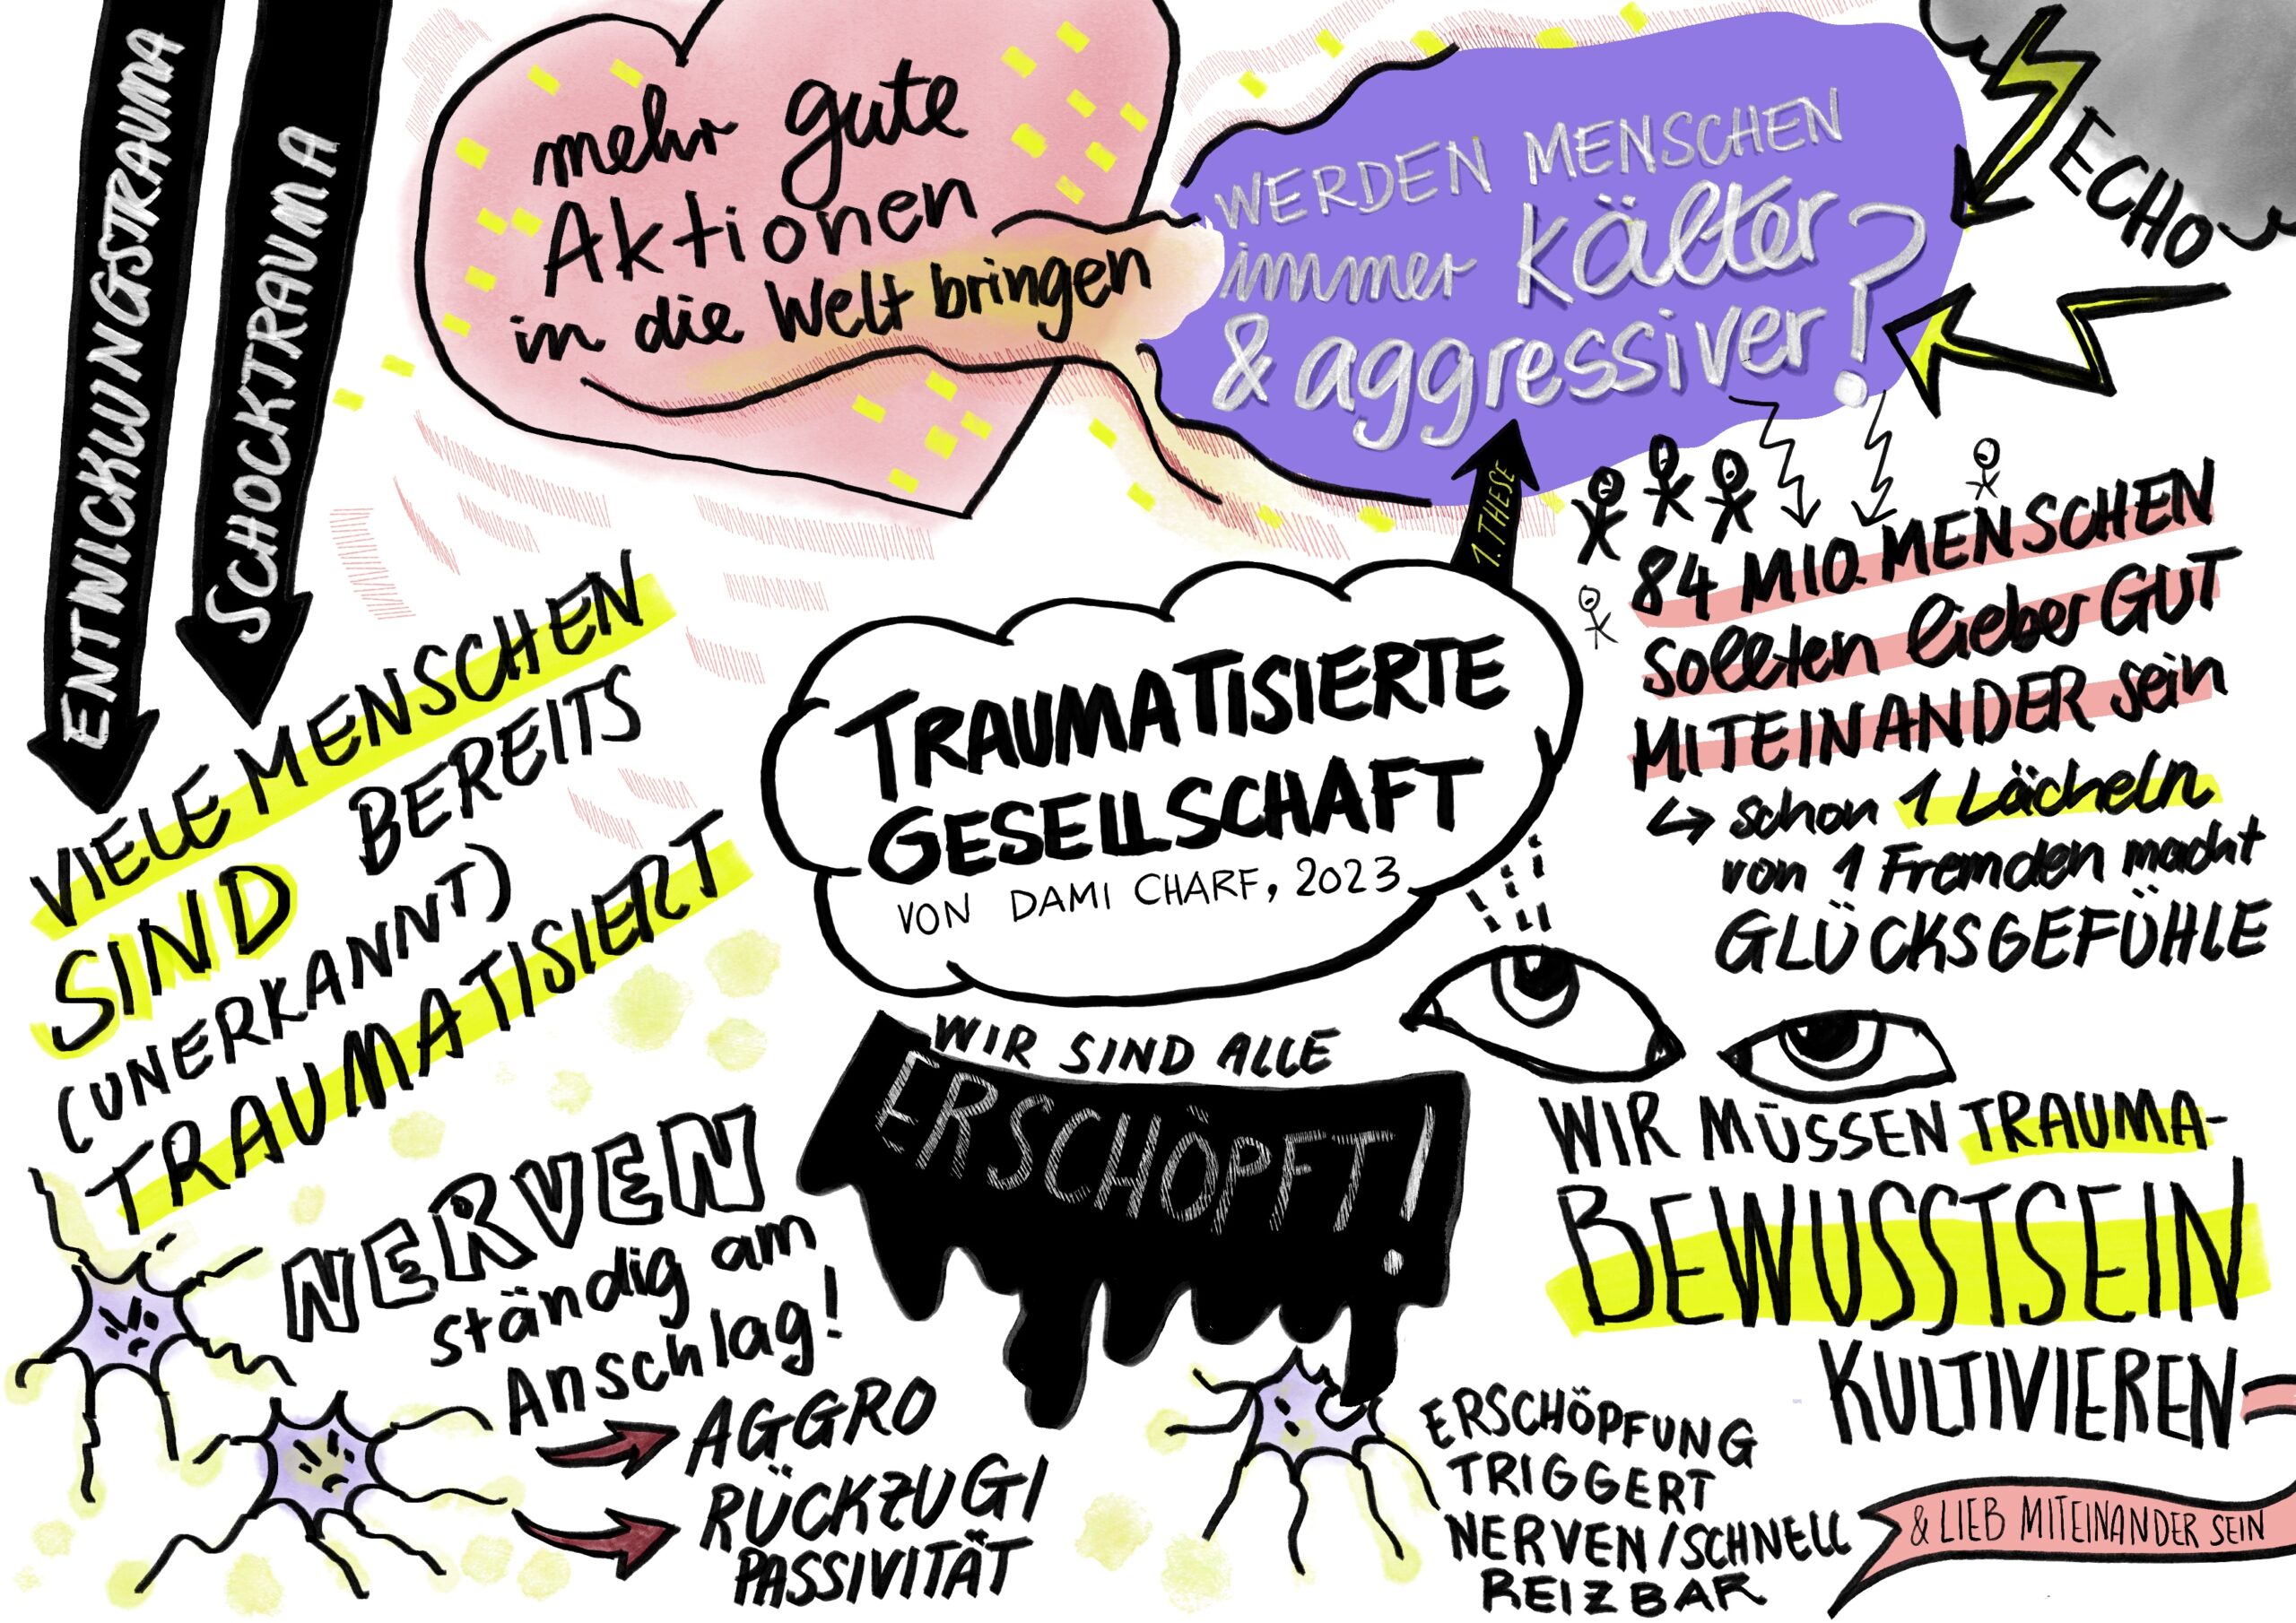 ENTWICKLUNGSTRAUMA
SCHOCKTRAUMA
mehr gute
Aktionen
in die Welt bringen
WERDEN MENSCHEN
immer kälter
& aggressiver?
ECHO
1. THESE
84 MIO. MENSCHEN
sollten lieber GUT
MITEINANDER sein
↳ schon 1 Lächeln
von 1 Fremden macht
GLÜCKSGEFÜHLE
TRAUMATISIERTE
GESELLSCHAFT
VON DAMI CHARF, 2023
VIELE MENSCHEN
SIND BEREITS
(UNERKANNT)
TRAUMATISIERT
WIR SIND ALLE
ERSCHÖPFT!
WIR MÜSSEN TRAUMA-
BEWUSSTSEIN
KULTIVIEREN
& LIEB MITEINANDER SEIN
NERVEN
ständig am
Anschlag!
AGGRO
RÜCKZUG/
PASSIVITÄT
ERSCHÖPFUNG
TRIGGERT
NERVEN/SCHNELL
REIZBAR